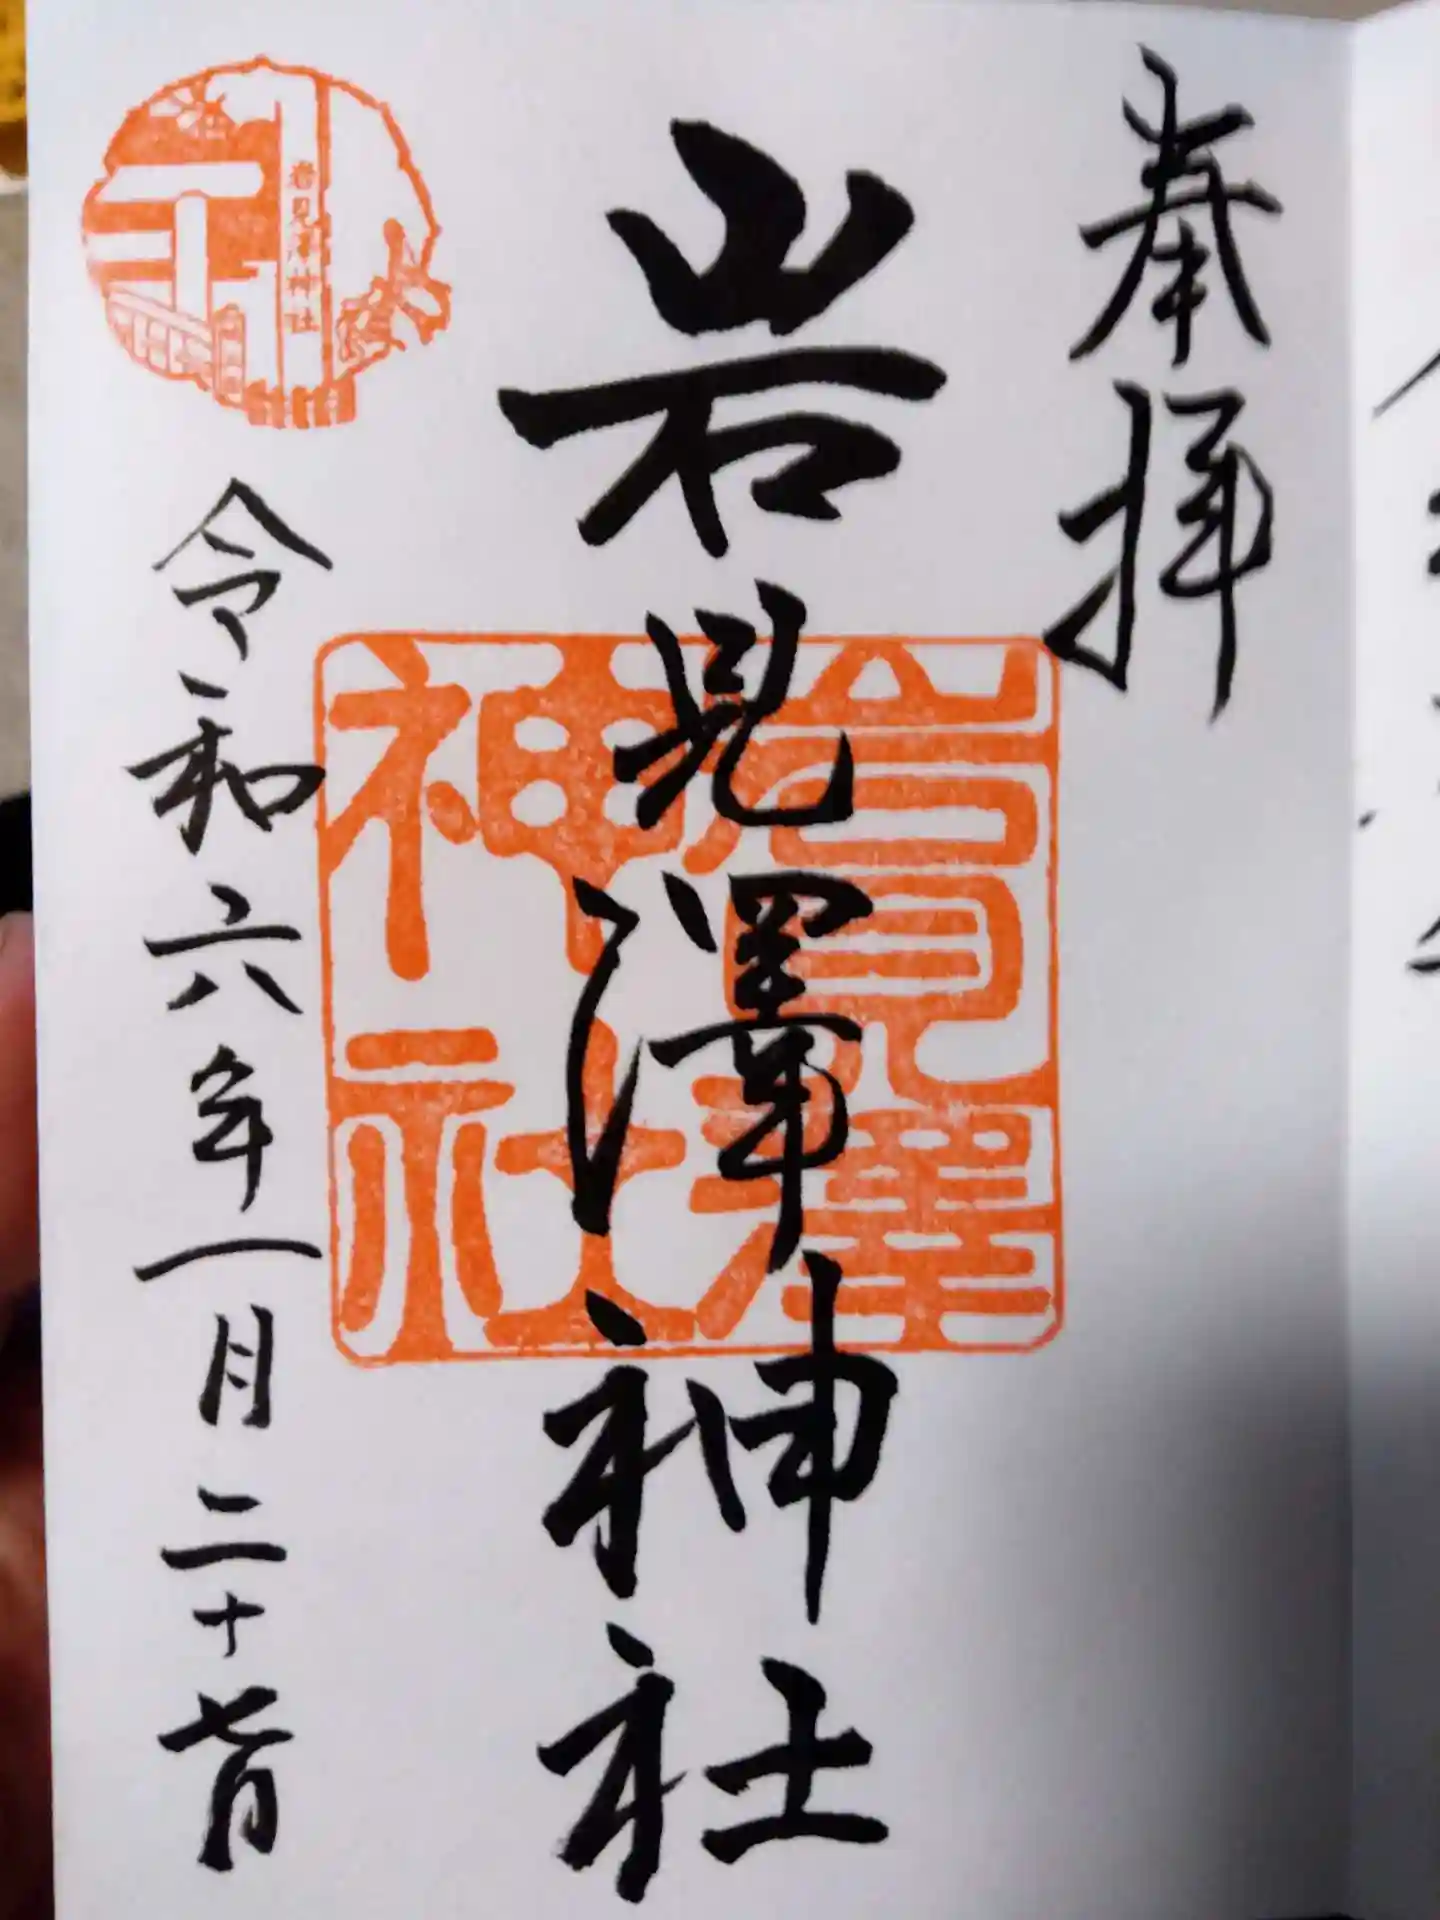 奉拝
岩見澤神社
岩見澤
神社
岩見澤神社
令和六年一月二十七日